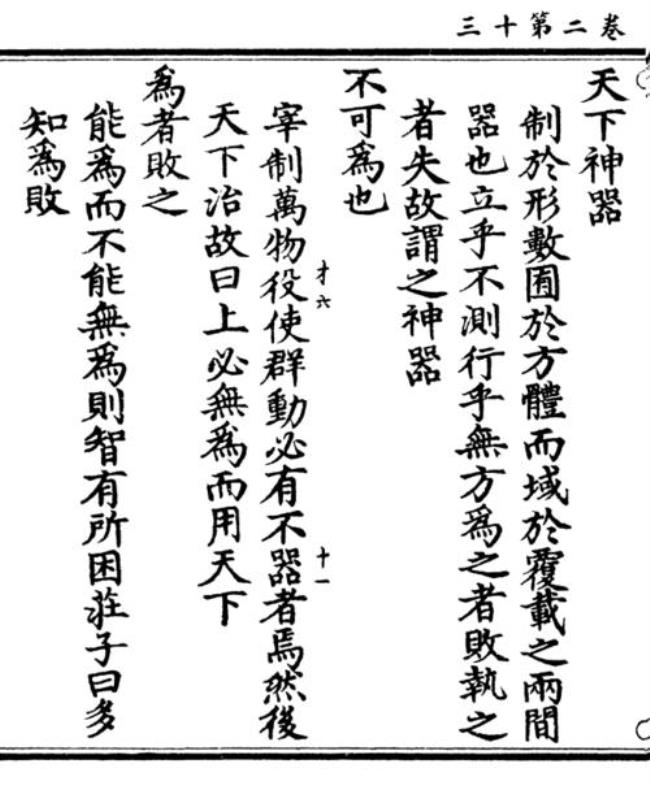 三十第二卷
天下神器
制於形數囿於方體而域於覆載之兩間
器也立乎不測行乎無方為之者敗執之
者失故謂之神器
不可為也
宰制萬物役使群動必有不器者焉然後
才六
十一
天下治故曰上必無為而用天下
為者敗之
能為而不能無為則智有所困莊子曰多
知為敗